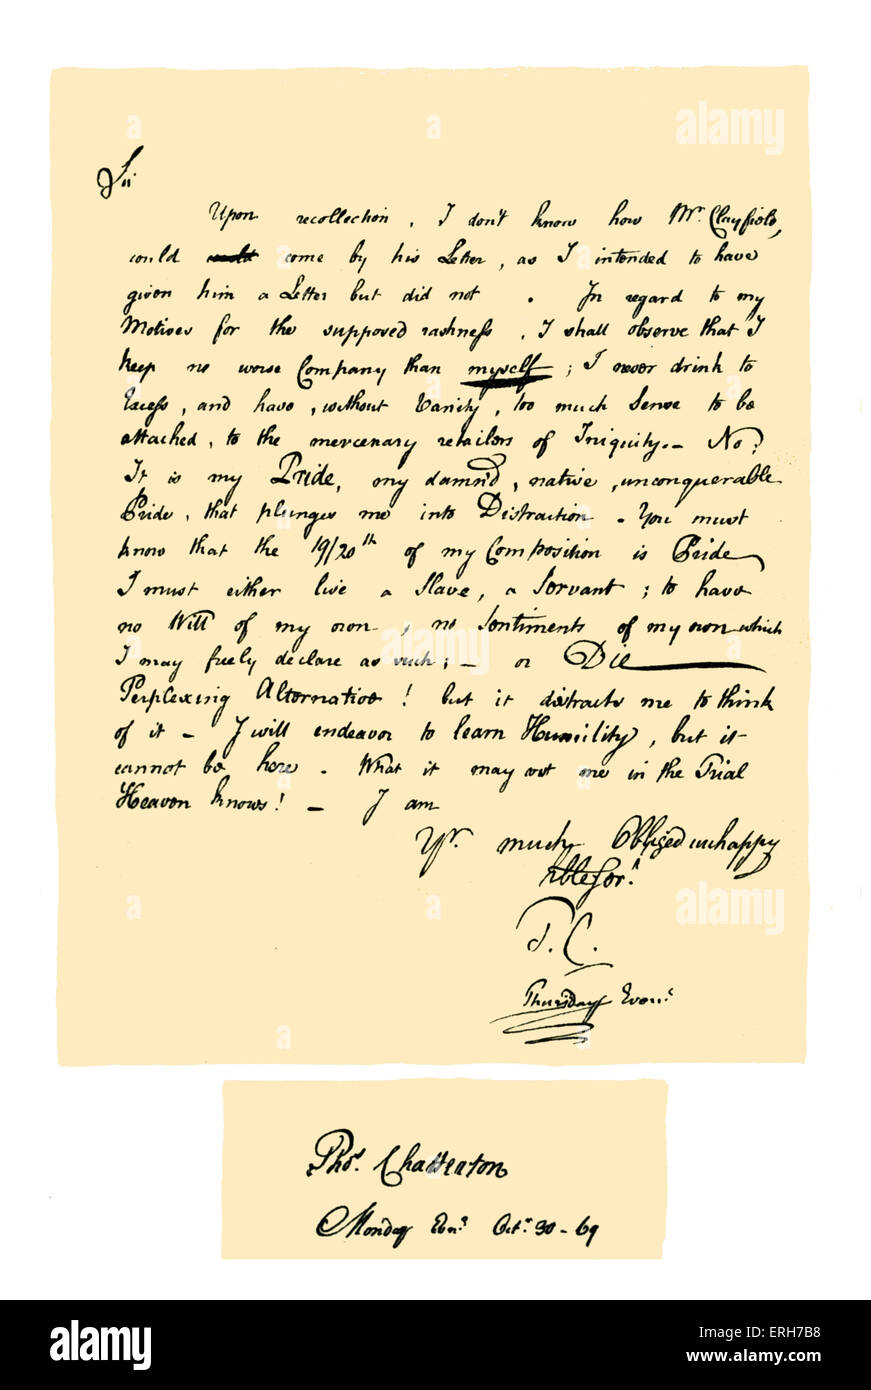 Sir
Upon recollection, I don't know how Mr. Clayfield,
could could come by his Letter, as I intended to have
given him a Letter but did not. In regard to my
Motives for the supposed rashness, I shall observe that I
keep no worse Company than myself; I never drink to
Excess, and have, without Vanity, too much Sense to be
attached, to the mercenary retailers of Iniquity. — No;
It is my Pride, my damn'd, native, unconquerable
Pride, that plunges me into Distraction. You must
know that the 19/20th of my Composition is Pride
I must either live a Slave, a Servant; to have
no Will of my own, no Sentiments of my own which
I may freely declare as such; — or Die
Perplexing Alternative! but it distracts me to think
of it — I will endeavor to learn Humility, but it
cannot be here. What it may cost me in the Trial
Heaven knows! — I am
Yr. much Obliged unhappy
Hble Ser.t
T. C.
Thursday Even.g
Thos. Chatterton
Monday Evn.g Oct.r 30 - 69
a alamy
alamy
alamy
alamy
Image ID: ERH7B8
www.alamy.com